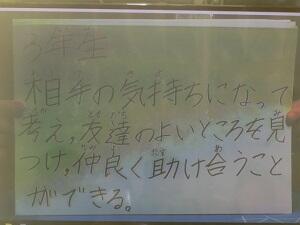 3年生
相手の気持ちになって
考え,友達のよいところを見
つけ,仲良く助け合うこと
ができる。